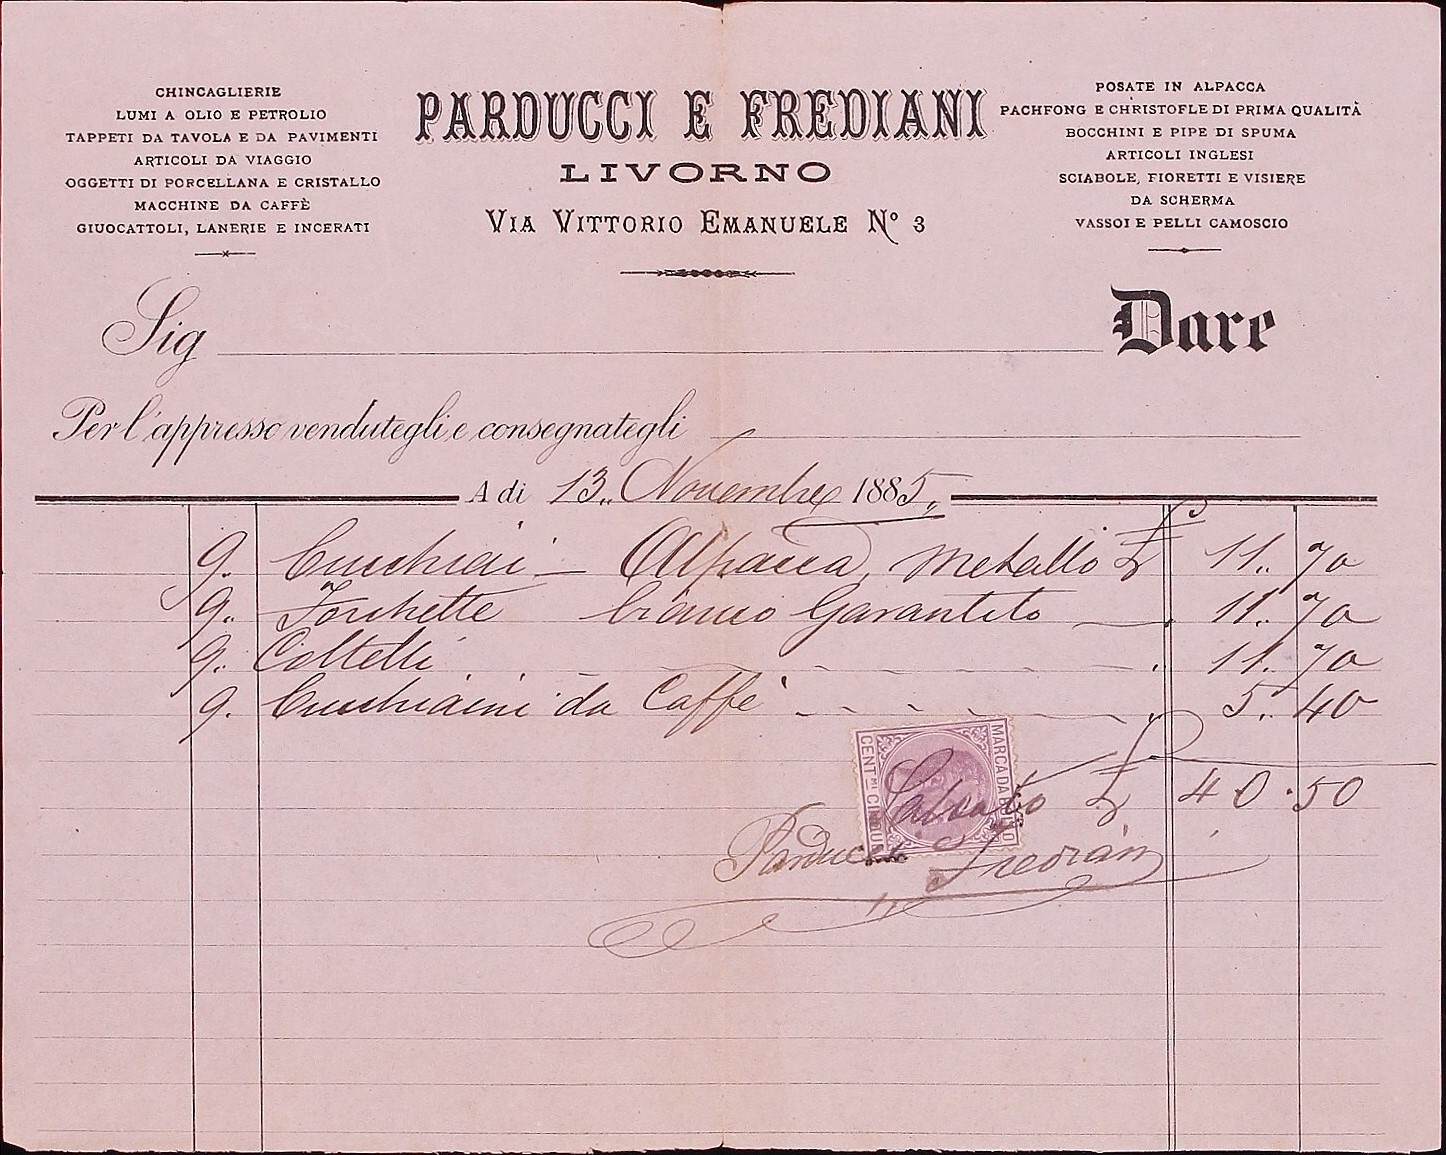 CHINCAGLIERIE
LUMI A OLIO E PETROLIO
TAPPETI DA TAVOLA E DA PAVIMENTI
ARTICOLI DA VIAGGIO
OGGETTI DI PORCELLANA E CRISTALLO
MACCHINE DA CAFFÈ
GIUOCATTOLI, LANERIE E INCERATI
PARDUCCI E FREDIANI
LIVORNO
VIA VITTORIO EMANUELE Nº 3
POSATE IN ALPACCA
PACHFONG E CHRISTOFLE DI PRIMA QUALITÀ
BOCCHINI E PIPE DI SPUMA
ARTICOLI INGLESI
SCIABOLE, FIORETTI E VISIERE
DA SCHERMA
VASSOI E PELLI CAMOSCIO
Sig Dare
Per l'appresso vendutegli e consegnategli
A di 13.. Novembre 1885,,
9. Cucchiai – Alpacca, metallo £ 11.. 70
9.. Forchette bianco Garantito — . 11.. 70
9.. Coltelli . 11. 70
9. Cucchiaini da Caffè 5.. 40
Saldato £ 40.50
Parducci Frediani
MARCA DA BOLLO
CENT.MI CINQUE